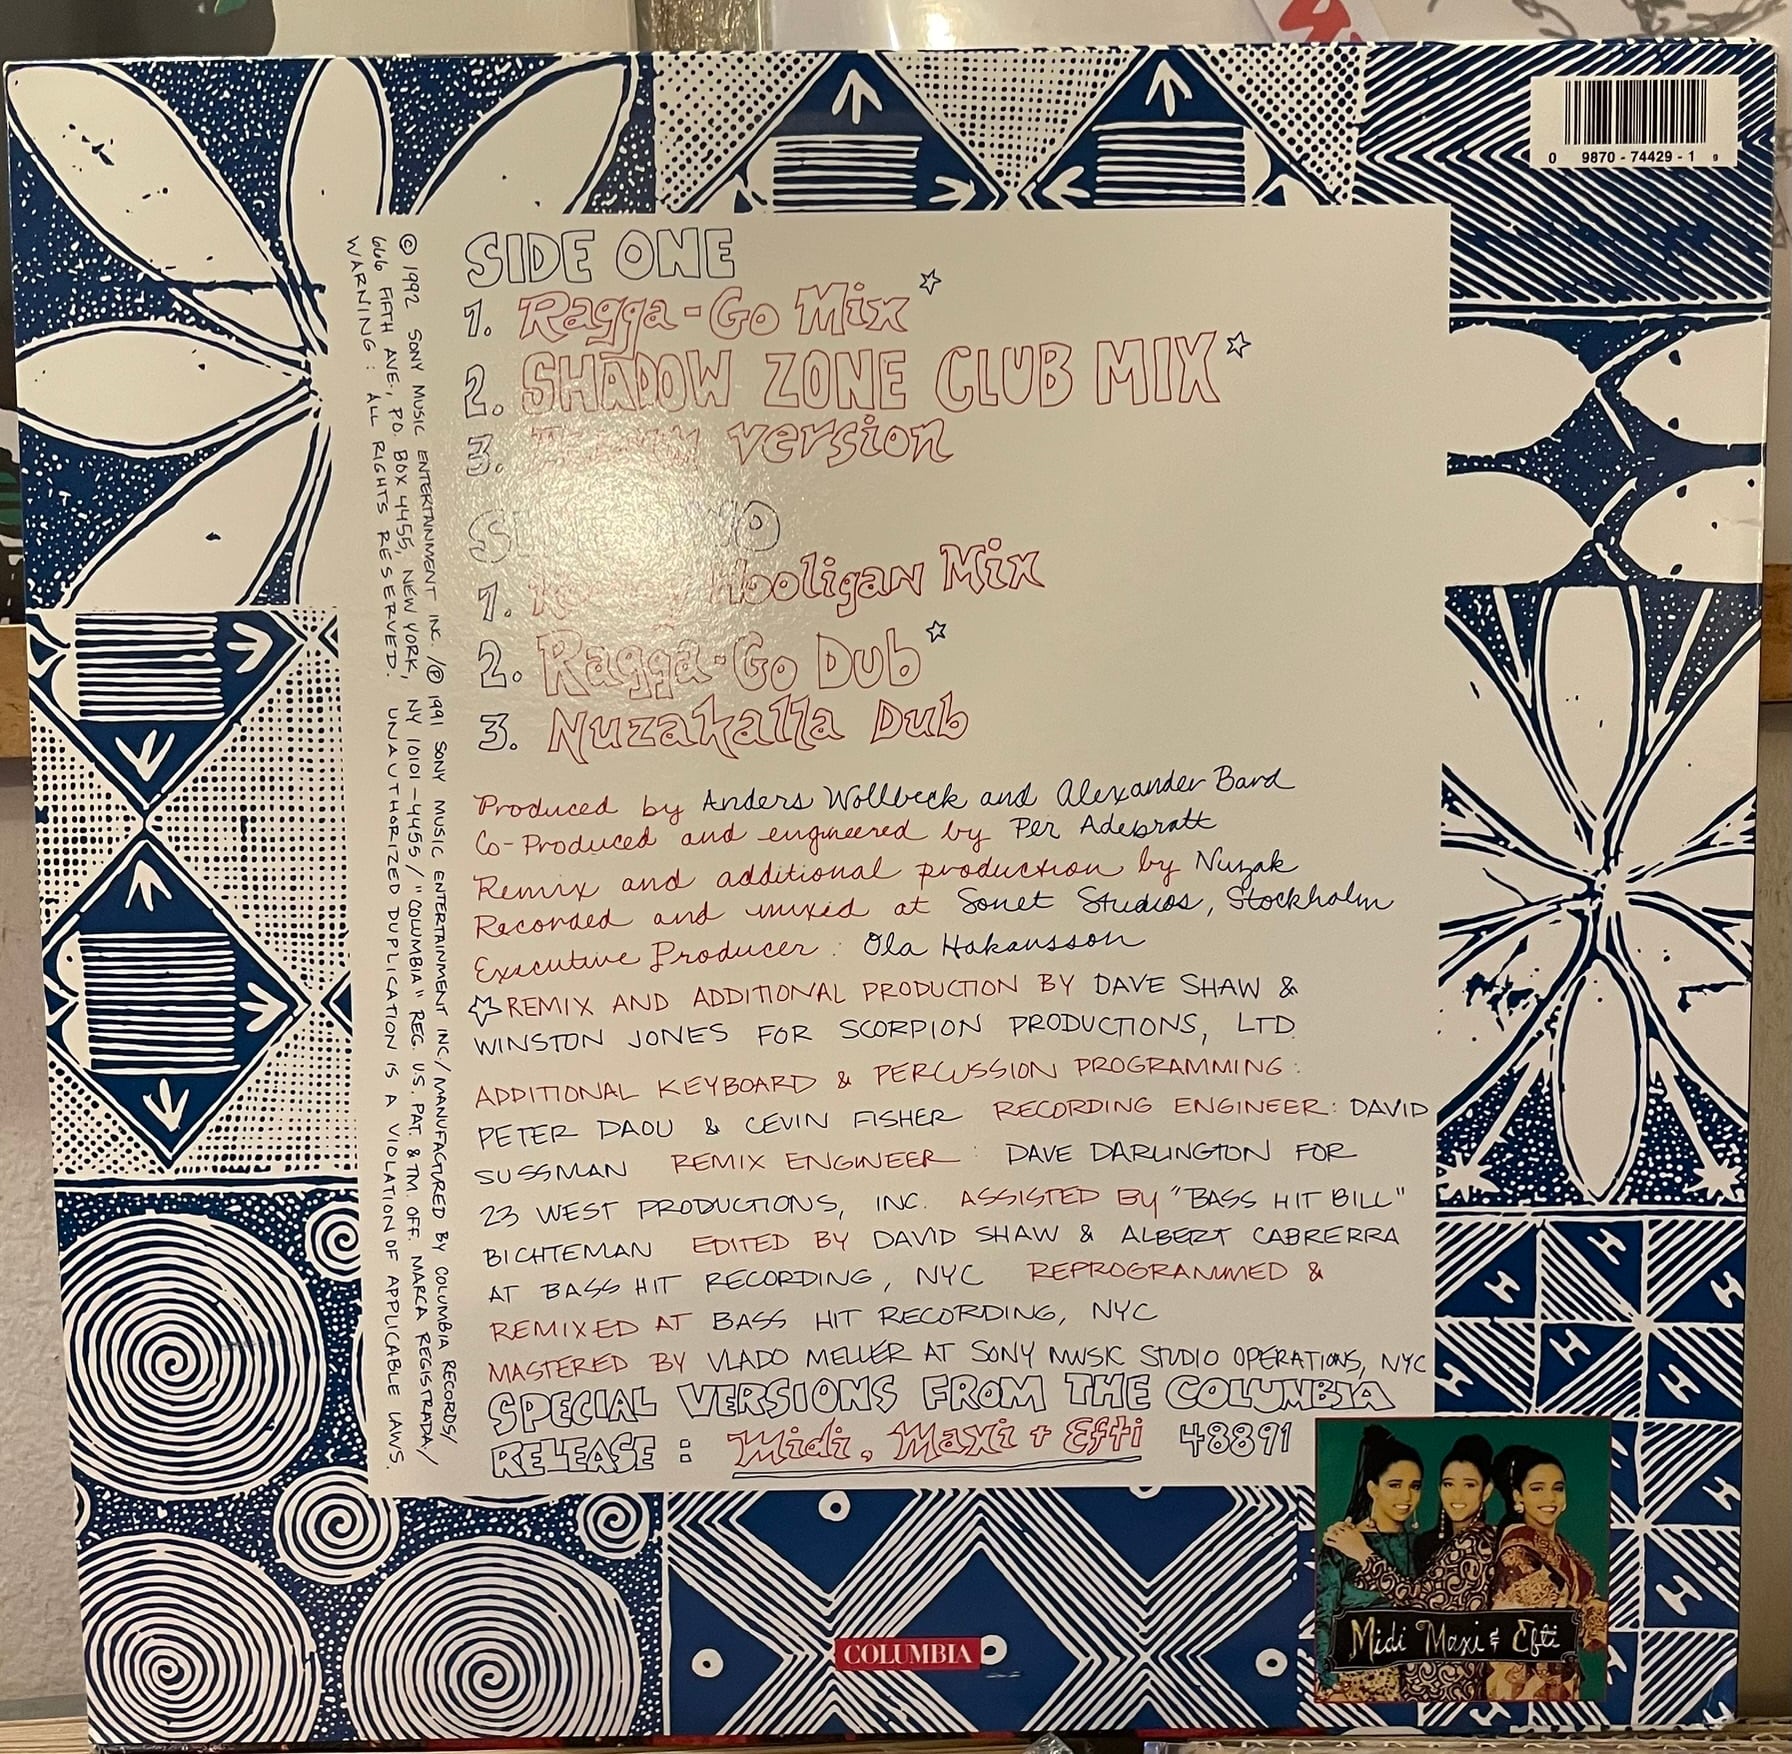 0 9870 - 74429 - 1 9
SIDE ONE
1. Ragga-Go Mix ☆
2. SHADOW ZONE CLUB MIX ☆
3. version
1. Hooligan Mix
2. Ragga-Go Dub ☆
3. Nuzakalla Dub
Produced by Anders Wollbeck and Alexander Bard
Co-Produced and engineered by Per Adebratt
Remix and additional production by Nuzak
Recorded and mixed at Sonet Studios, Stockholm
Executive Producer: Ola Hakansson
☆ REMIX AND ADDITIONAL PRODUCTION BY DAVE SHAW &
WINSTON JONES FOR SCORPION PRODUCTIONS, LTD.
ADDITIONAL KEYBOARD & PERCUSSION PROGRAMMING:
PETER DAOU & CEVIN FISHER RECORDING ENGINEER: DAVID
SUSSMAN REMIX ENGINEER: DAVE DARLINGTON FOR
23 WEST PRODUCTIONS, INC. ASSISTED BY "BASS HIT BILL"
BICHTEMAN EDITED BY DAVID SHAW & ALBERT CABRERRA
AT BASS HIT RECORDING, NYC REPROGRAMMED &
REMIXED AT BASS HIT RECORDING, NYC
MASTERED BY VLADO MELLER AT SONY MUSIC STUDIO OPERATIONS, NYC
SPECIAL VERSIONS FROM THE COLUMBIA
RELEASE: Midi, Maxi + Efti 48891
© 1992 SONY MUSIC ENTERTAINMENT INC. /℗ 1991 SONY MUSIC ENTERTAINMENT INC./MANUFACTURED BY COLUMBIA RECORDS/
666 FIFTH AVE., P.O. BOX 4455, NEW YORK, NY 10101-4455/"COLUMBIA" REG. U.S. PAT. & TM. OFF. MARCA REGISTRADA/
WARNING: ALL RIGHTS RESERVED. UNAUTHORIZED DUPLICATION IS A VIOLATION OF APPLICABLE LAWS.
COLUMBIA
Midi Maxi & Efti